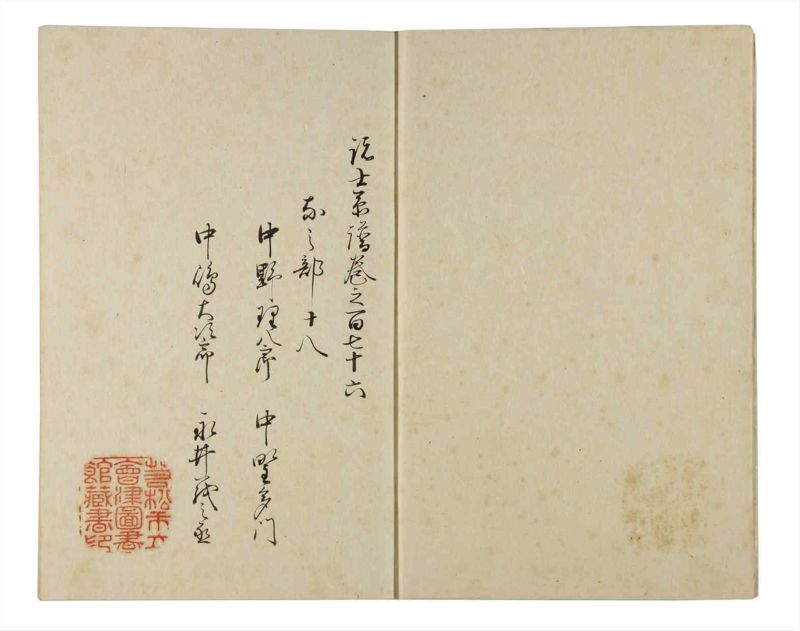 諸士系譜巻之百七十六
な之部十八
中野理八郎 中野多門
中嶋大次郎 永井茂之丞
若松市立
會津圖書
館藏書印